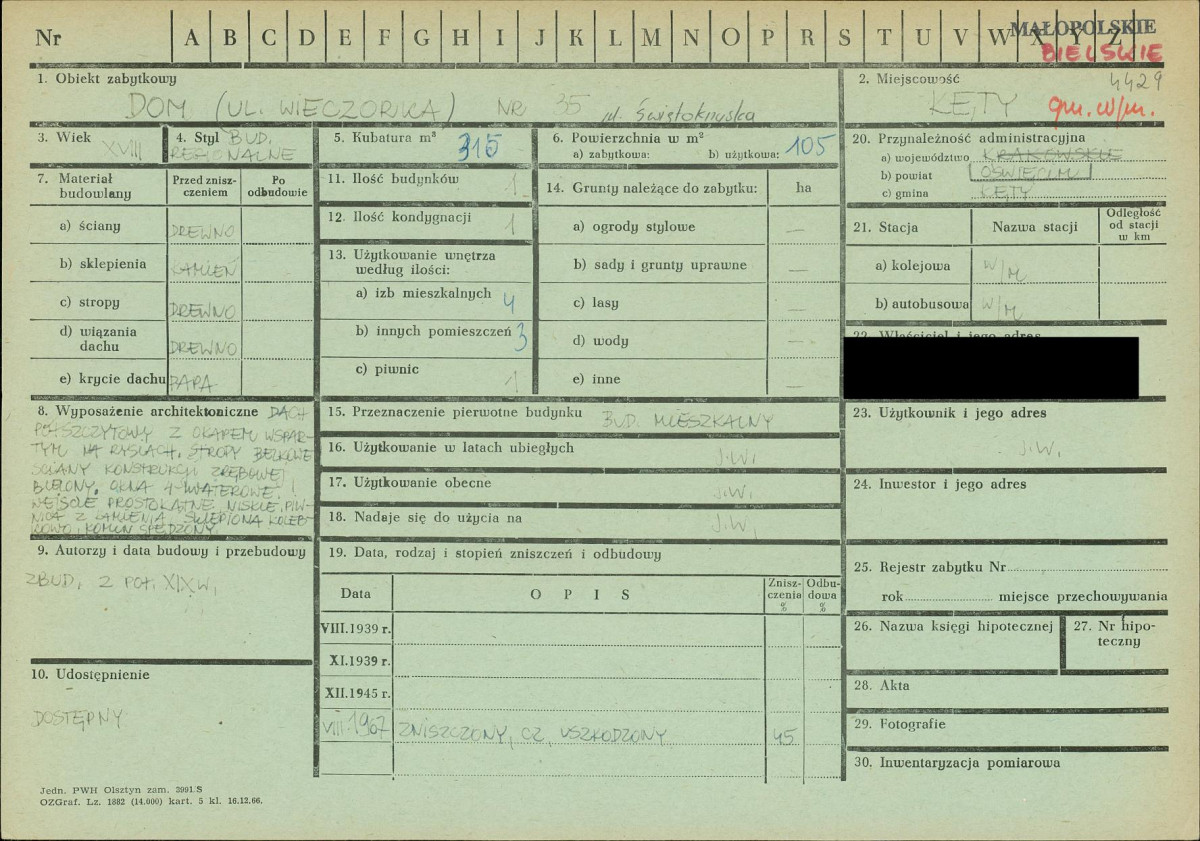 Nr A B C D E F G H I J K L M N O P R S T U V W X Y Z
MAŁOPOLSKIE
BIELSKIE
1. Obiekt zabytkowy
DOM (UL. WIECZORKA) NR 35 ul. Świętokrzyska
2. Miejscowość 4429
KĘTY gm. w/m.
3. Wiek XVIII
4. Styl BUD. REGIONALNE
5. Kubatura m³ 315
6. Powierzchnia w m²
a) zabytkowa: b) użytkowa: 105
7. Materiał budowlany
Przed zniszczeniem
Po odbudowie
a) ściany DREWNO
b) sklepienia KAMIEŃ
c) stropy DREWNO
d) wiązania dachu DREWNO
e) krycie dachu PAPA
8. Wyposażenie architektoniczne DACH
PÓŁSZCZYTOWY Z OKAPEM WSPAR-
TYM NA RYSIACH, STROPY BELKOWE
ŚCIANY KONSTRUKCJI ZRĘBOWEJ
BIELONY, OKNA 4-KWATEROWE I
WEJŚCIE PROSTOKĄTNE NISKIE, PIW-
NICA Z KAMIENIA SKLEPIONA KOLEB-
KOWO, KOMIN SPĘDZONY
9. Autorzy i data budowy i przebudowy
ZBUD. Z POŁ. XIX W.
10. Udostępnienie
DOSTĘPNY
11. Ilość budynków 1
12. Ilość kondygnacji 1
13. Użytkowanie wnętrza
według ilości:
a) izb mieszkalnych 4
b) innych pomieszczeń 3
c) piwnic 1
14. Grunty należące do zabytku: ha
a) ogrody stylowe —
b) sady i grunty uprawne —
c) lasy —
d) wody —
e) inne —
15. Przeznaczenie pierwotne budynku BUD. MIESZKALNY
16. Użytkowanie w latach ubiegłych J.W.
17. Użytkowanie obecne J.W.
18. Nadaje się do użycia na J.W.
19. Data, rodzaj i stopień zniszczeń i odbudowy
Data O P I S Zniszczenia % Odbudowa %
VIII.1939 r.
XI.1939 r.
XII.1945 r.
VIII.1967 ZNISZCZONY, CZ. USZKODZONY 45
20. Przynależność administracyjna
a) województwo KRAKOWSKIE
b) powiat OŚWIĘCIM
c) gmina KĘTY
21. Stacja Nazwa stacji Odległość od stacji w km
a) kolejowa W/M
b) autobusowa W/M
22. Właściciel i jego adres
23. Użytkownik i jego adres
J.W.
24. Inwestor i jego adres
25. Rejestr zabytku Nr
rok miejsce przechowywania
26. Nazwa księgi hipotecznej
27. Nr hipo-
teczny
28. Akta
29. Fotografie
30. Inwentaryzacja pomiarowa
Jedn. PWH Olsztyn zam. 3991.S
OZGraf. Lz. 1882 (14.000) kart. 5 kl. 16.12.66.